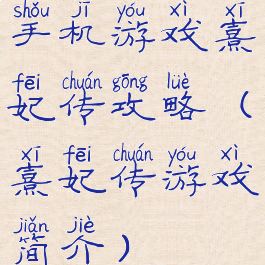 shǒu jī yóu xì xī
手机游戏熹
fēi chuán gōng lüè
妃传攻略（
xī fēi chuán yóu xì
熹妃传游戏
jiǎn jiè
简介）